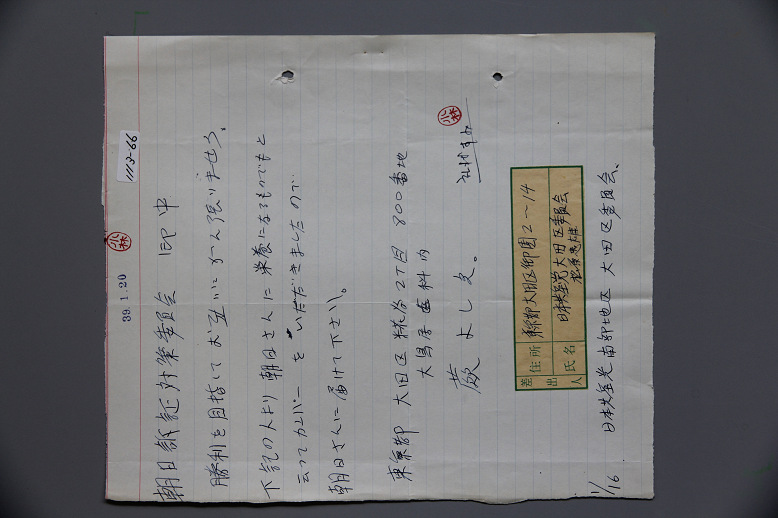 1113-66
39.1.20
小林
朝日訴訟対策委員会 御中
勝利を目指してお互いに がん張りませう。
下記の人より 朝日さんに 栄養になるものでもと
云ってカンパーを いただきましたので
朝日さんに届けて下さい。
東京都 大田区 糀谷2丁目 800番地
大鳥居歯科内
蕨 よしえ。
小林
差出人
住所 東京都大田区御園2〜14
氏名 日本共産党大田区委員会
1/16 日本共産党南部地区 大田区委員会。